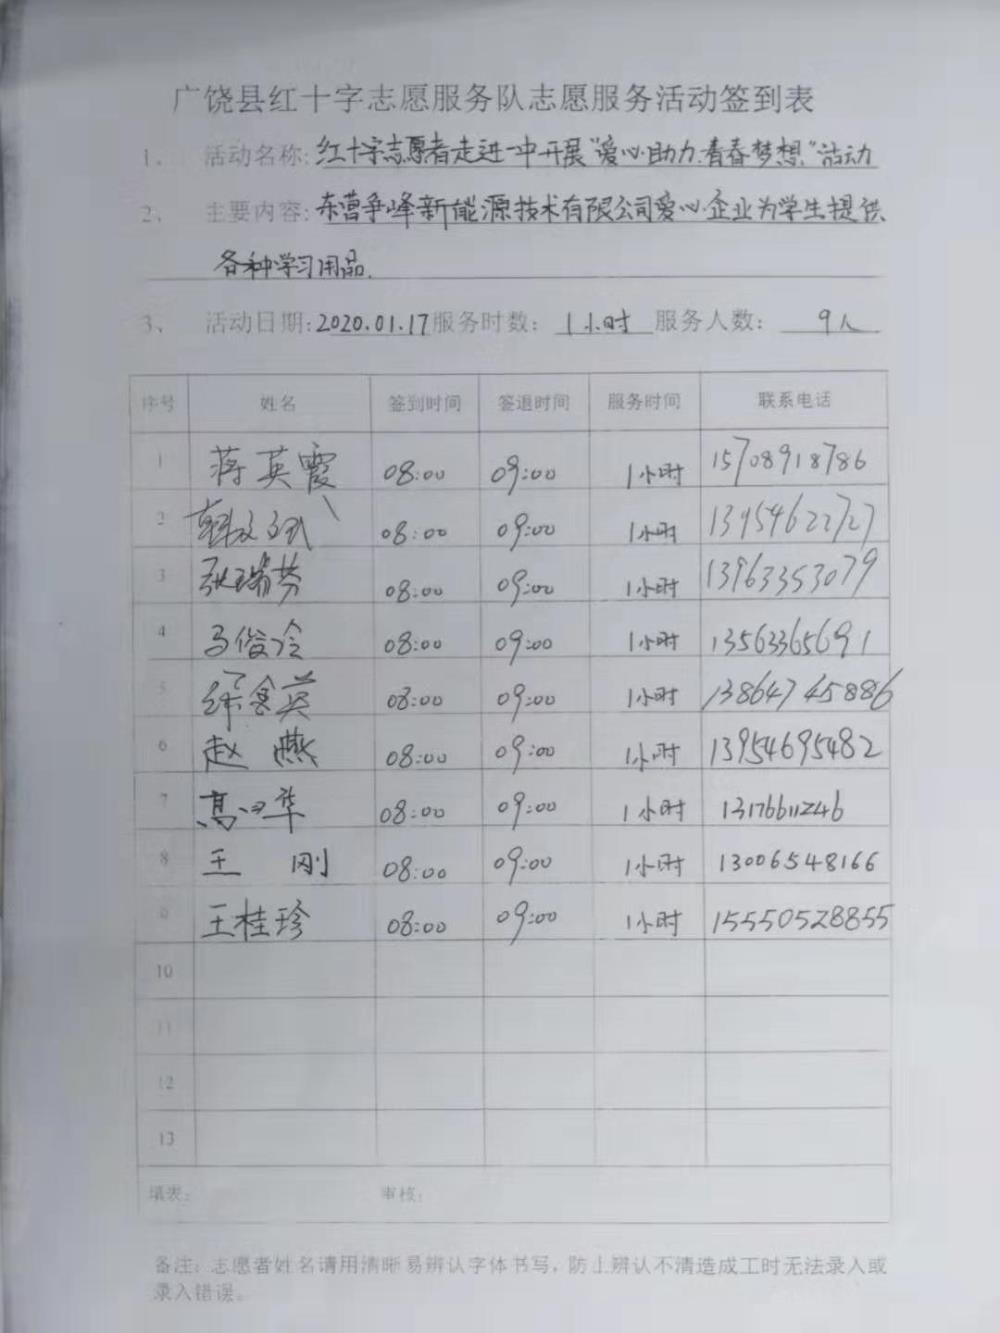 广饶县红十字志愿服务队志愿服务活动签到表
1、 活动名称:红十字志愿者走进一中开展“爱心助力.青春梦想.”活动
2、 主要内容:东营争峰新能源技术有限公司爱心企业为学生提供
各种学习用品.
3、 活动日期:2020.01.17服务时数: 1小时 服务人数: 9人
序号 姓名 签到时间 签退时间 服务时间 联系电话
1 蒋英霞 08:00 09:00 1小时 15708918786
2 08:00 09:00 1小时 13954622727
3 耿瑞芬 08:00 09:00 1小时 13963353079
4 马俊冷 08:00 09:00 1小时 13563365691
5 08:00 09:00 1小时 13864745886
6 赵燕 08:00 09:00 1小时 13954695482
7 08:00 09:00 1小时 13176611246
8 王刚 08:00 09:00 1小时 13006548166
9 王桂珍 08:00 09:00 1小时 15550528855
10
11
12
13
填表: 审核:
备注: 志愿者姓名请用清晰易辨认字体书写, 防止辨认不清造成工时无法录入或
录入错误。